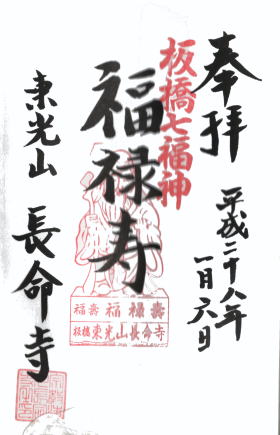 奉拝
平成二十八年
一月六日
板橋七福神
福禄寿
福壽 福禄壽
板橋 東光山長命寺
東光山 長命寺